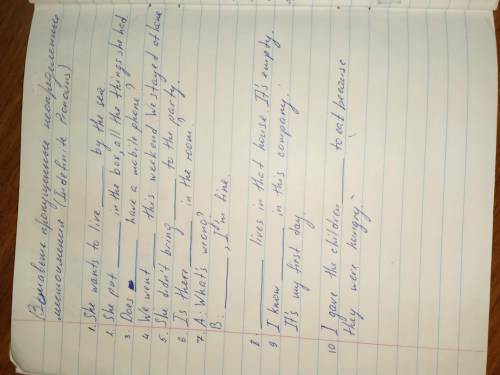 Вставьте пропущенные неопределенные
местоимения (Indefinite Pronouns)
1. She wants to live ____ by the sea.
2. She put ____ in the box, all the things she had.
3. Does ____ have a mobile phone?
4. We went ____ this weekend. We stayed at home
5. She didn't bring ____ to the party.
6 Is there ____ in the room?
7 A: What's wrong?
B: ____, I'm fine.
8 ____ lives in that house. It's empty.
9 I know ____ in this company.
It's my first day
10 I gave the children ____ to eat because
they were hungry.